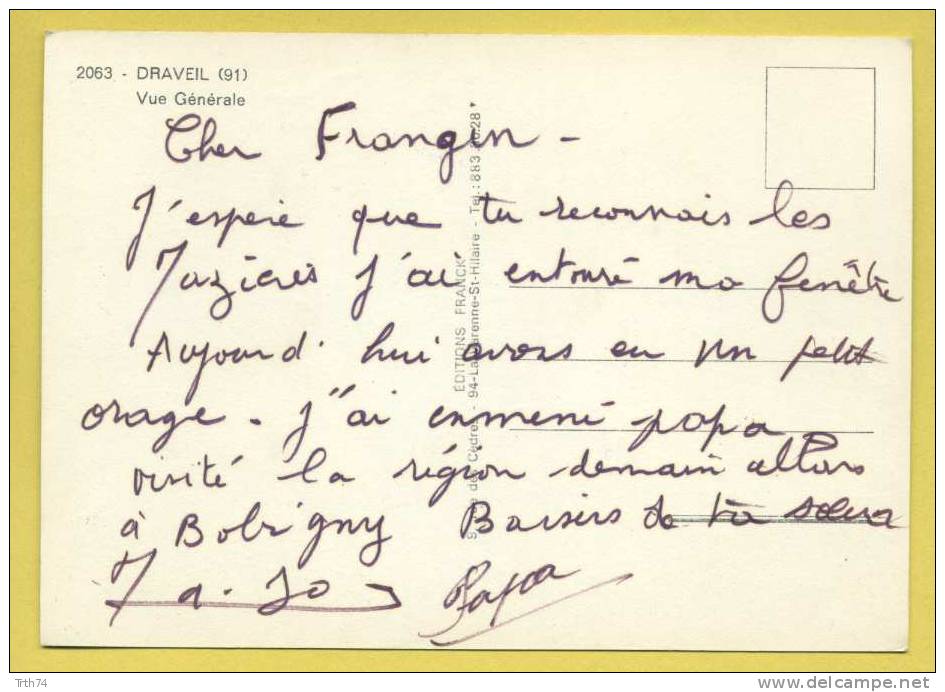 2063 - DRAVEIL (91)
Vue Générale
Cher Frangin -
J'espere que tu reconnais les
Mazieres J'ai entouré ma fenêtre
Aujourd'hui avons eu un petit
orage - J'ai enmené papa
visité la région demain allons
à Bobigny Baisers de ta soeur
Papa
EDITIONS FRANCK
des Cèdres - 94-La Varenne-St-Hilaire - Tel.: 883 28
Trth74
www.delcampe.net